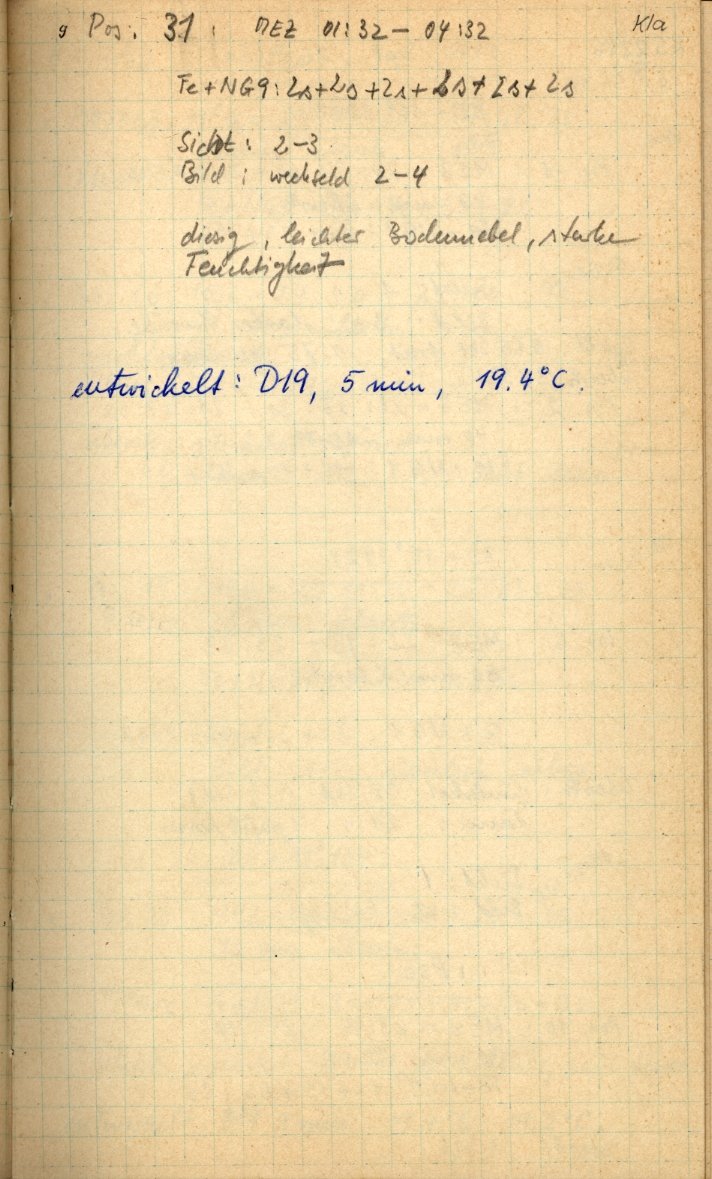 g Pos. 31 : MEZ 01:32 – 04:32 Kla
Fe + NG9: 2s + 2s + 2s + 2s + 2s + 2s
Sicht : 2–3
Bild : wechseld 2–4
diesig , leichter Bodennebel , starke
Feuchtigkeit
entwickelt : D19, 5 min, 19.4°C.